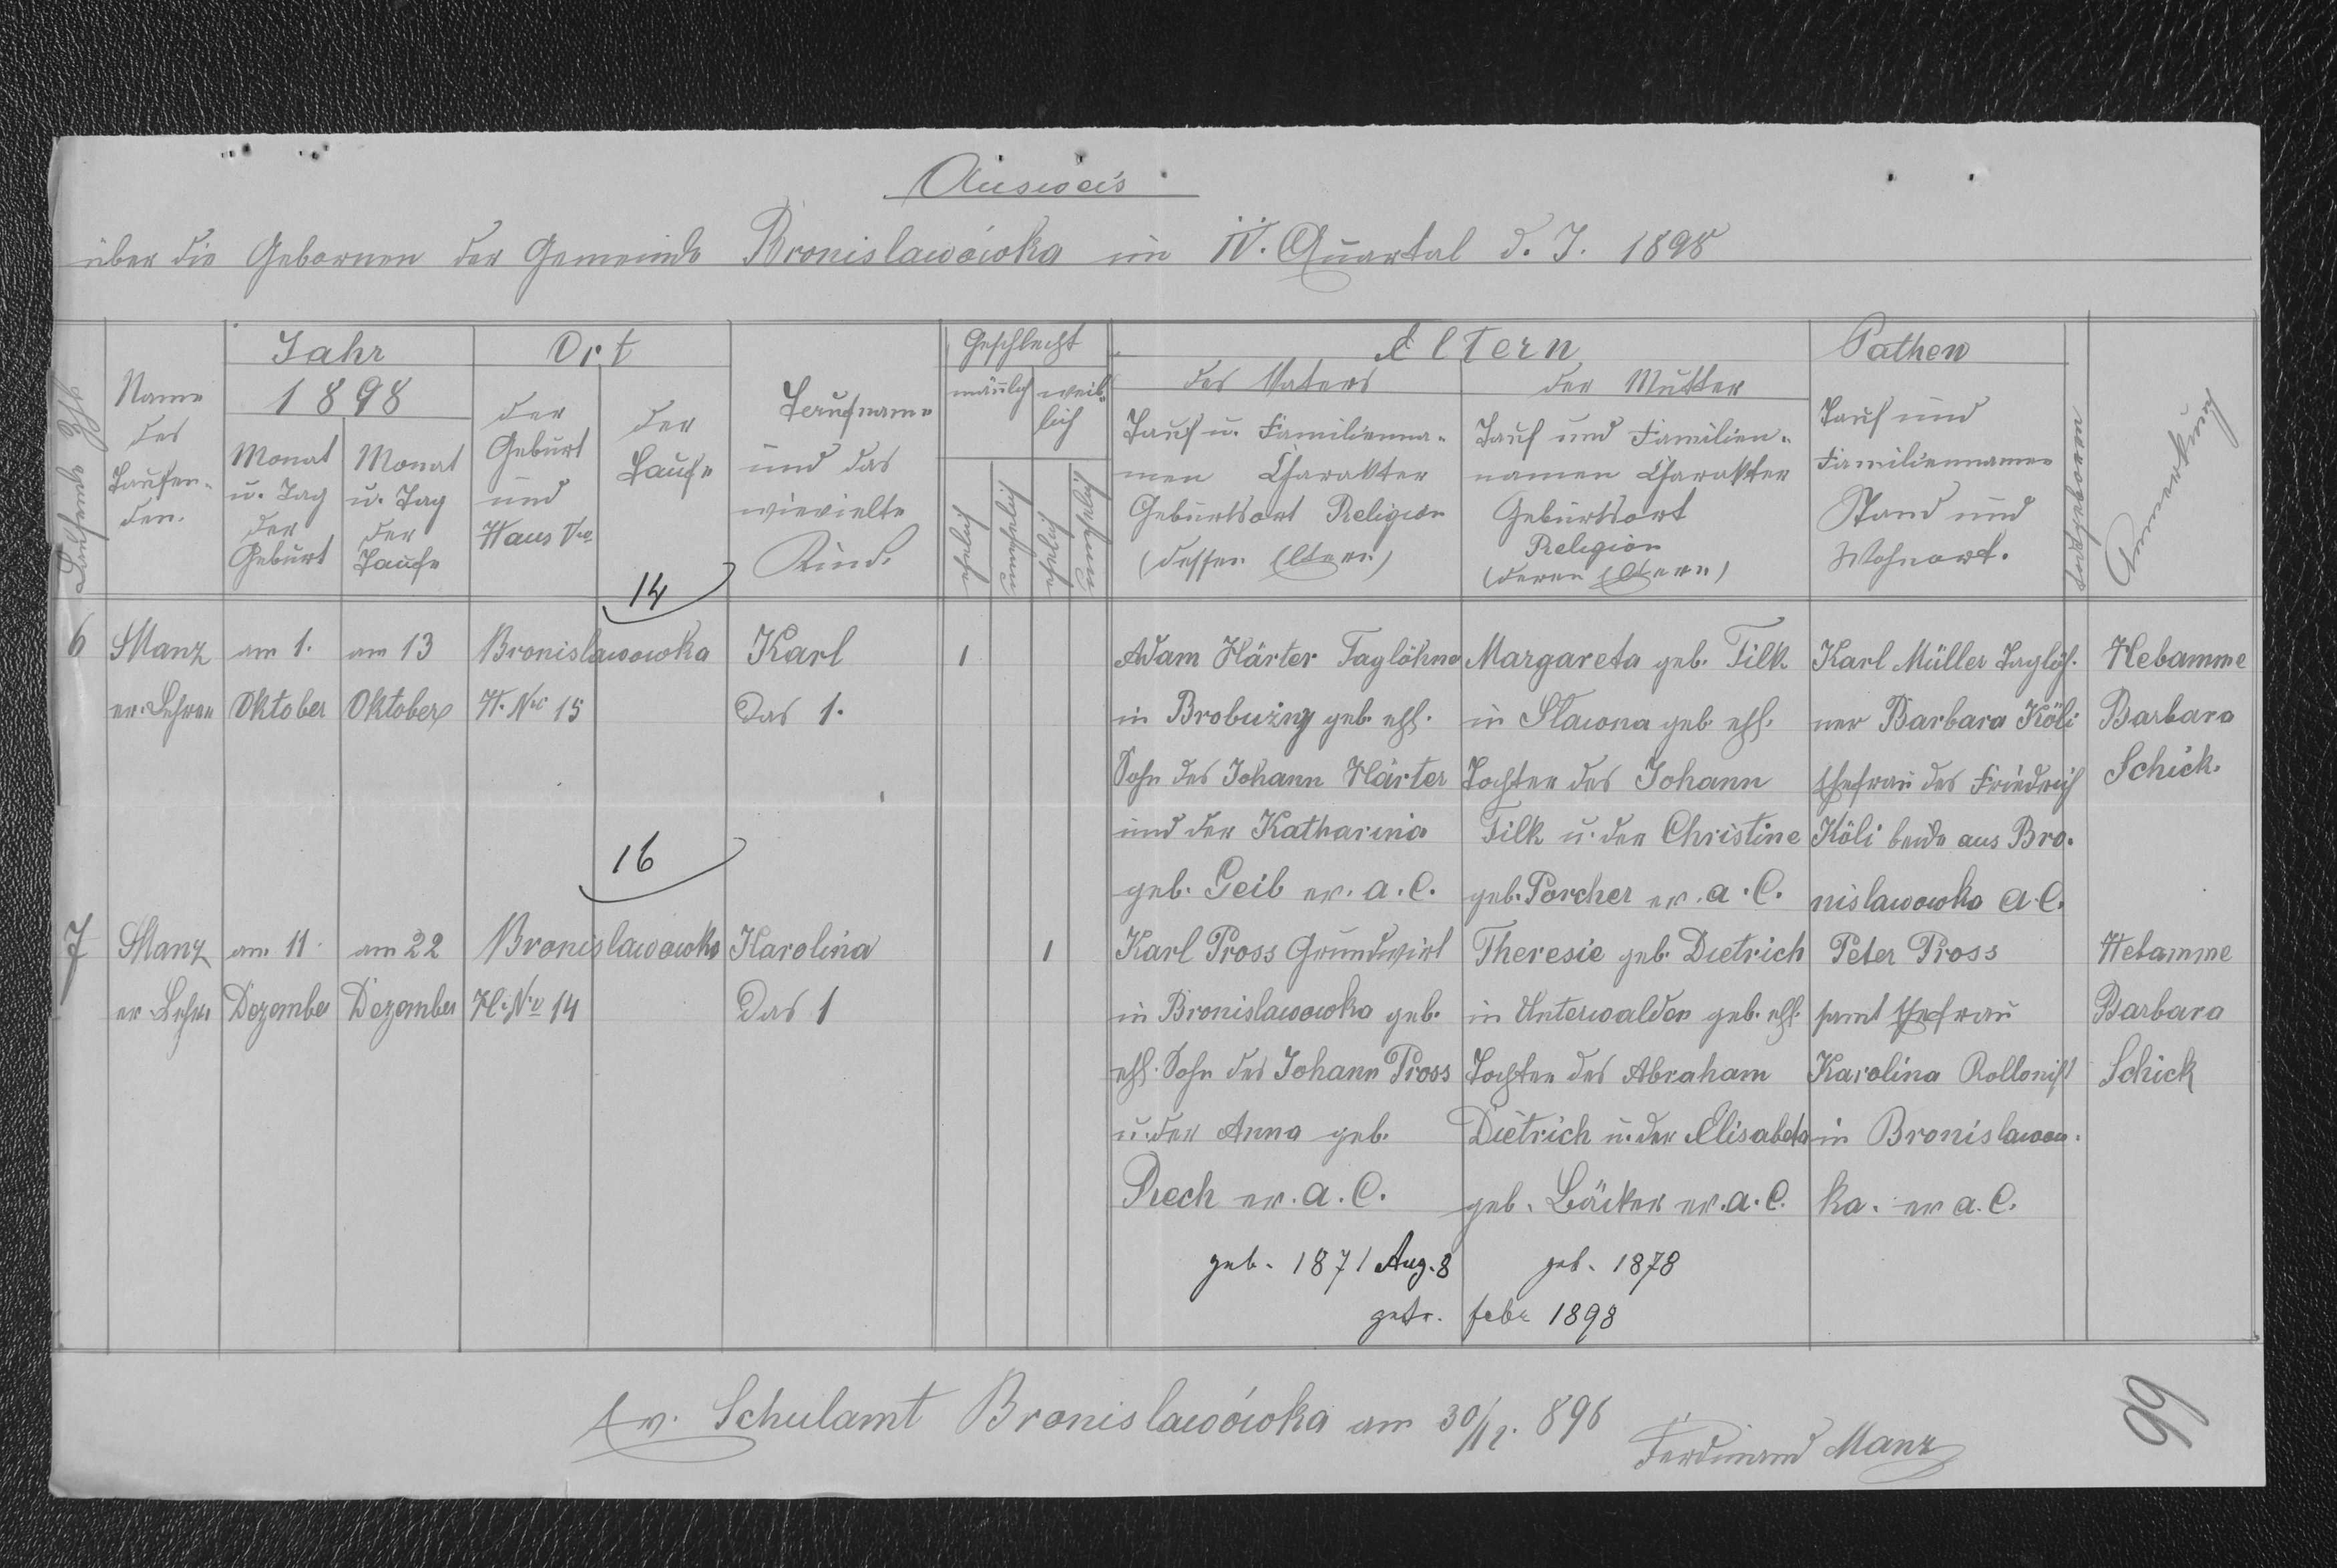 Ausweis
über die Gebornen der Gemeinde Bronislawówka im IV. Quartal d. J. 1898
Laufende Zahl
Name
des
Taufen-
den.
Jahr
1898
Monat
u. Tag
der
Geburt
Monat
u. Tag
der
Taufe
Ort
der
Geburt
und
Haus No
der
Taufe
Taufname
und das
wievielte
Kind.
Geschlecht
männlich
weib-
lich
ehelich
unehelich
ehelich
unehelich
Eltern
des Vaters
Tauf u. Familienna-
men Charakter
Geburtsort Religion
(dessen Eltern)
der Mutter
Tauf und Familien-
namen Charakter
Geburtsort
Religion
(deren Eltern)
Pathen
Tauf und
Familiennamen
Stand und
Wohnort.
Todtgeboren
Anmerkung
14
6
Manz
ev. Lehrer
am 1.
Oktober
am 13
Oktober
Bronislawowka
H. No 15
Karl
Das 1.
1
Adam Härter Taglöhne
in Brobużny geb. ehl.
Sohn des Johann Härter
und der Katharina
geb. Geib ev. a. C.
Margareta geb. Filk
in Slawna geb. ehl.
Tochter des Johann
Filk u. der Christine
geb. Porcher ev. a. C.
Karl Müller Taglöh-
ner Barbara Köli
Ehefrau des Friedrich
Köli beide aus Bro-
nislawowka a. C.
Hebamme
Barbara
Schick.
16
7
Manz
ev Lehrer
am 11.
Dezember
am 22
Dezember
Bronislawowka
H. No 14
Karolina
Das 1
1
Karl Pross Grundwirt
in Bronislawowka geb.
ehl. Sohn des Johann Pross
u. der Anna geb.
Rech ev. a. C.
geb. 1871 Aug. 8
Theresie geb. Dietrich
in Unterwalden geb. ehl.
Tochter des Abraham
Dietrich u. der Elisabeta
geb. Bäcker ev. a. C.
geb. 1878
getr. feb. 1898
Peter Pross
samt Ehefrau
Karolina Kollonist
in Bronislawow-
ka. ev a. C.
Hebamme
Barbara
Schick
Ev. Schulamt Bronislawówka am 30/12. 898
Ferdinand Manz
99